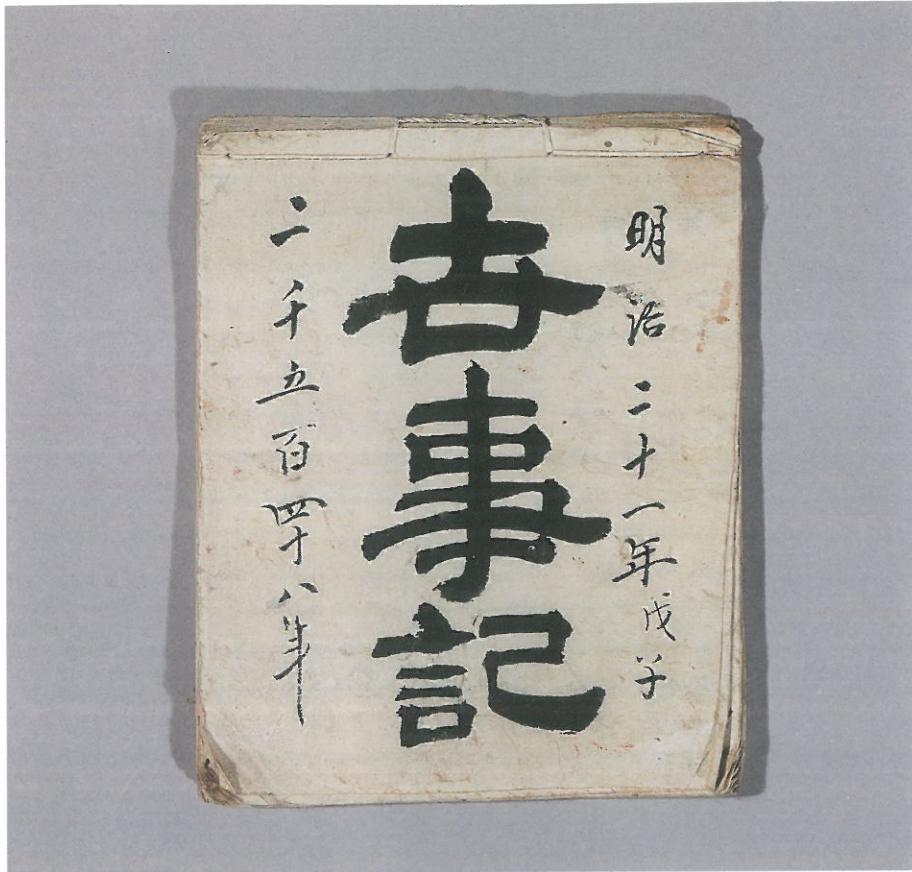 明治二十一年戊子
吉事記
二千五百四十八年